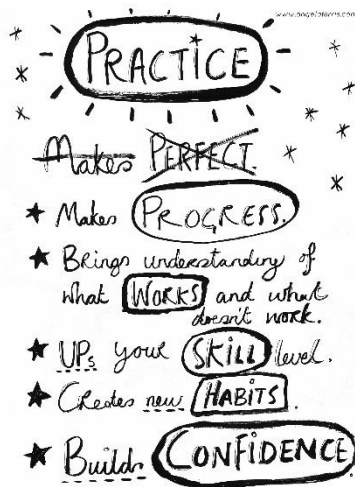 www.angelaferris.com
PRACTICE
Makes PERFECT.
Makes PROGRESS.
Brings understanding of
what WORKS and what
doesn't work.
UPs your SKILL level.
Creates new HABITS.
Builds CONFIDENCE.